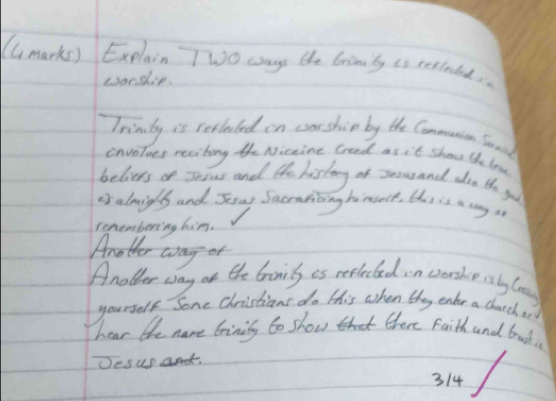 (4 marks) Explain TWO ways the trinity is reflected in
worship.
Trinity is reflected in worship by the Communion Service
envolves reciting the Niceine Creed as it shows the true
beliefs of Jesus and the history of Jesus and also the god
is almighty and Jesus Sacraficing himself. this is a way of
remembering him. ✓
Another way of
Another way of the trinity is reflected in worship is by Crossing
yourself Some Christians do this when they enter a church and
hear the name trinity to show that there Faith and trust in
Jesus and.
3/4